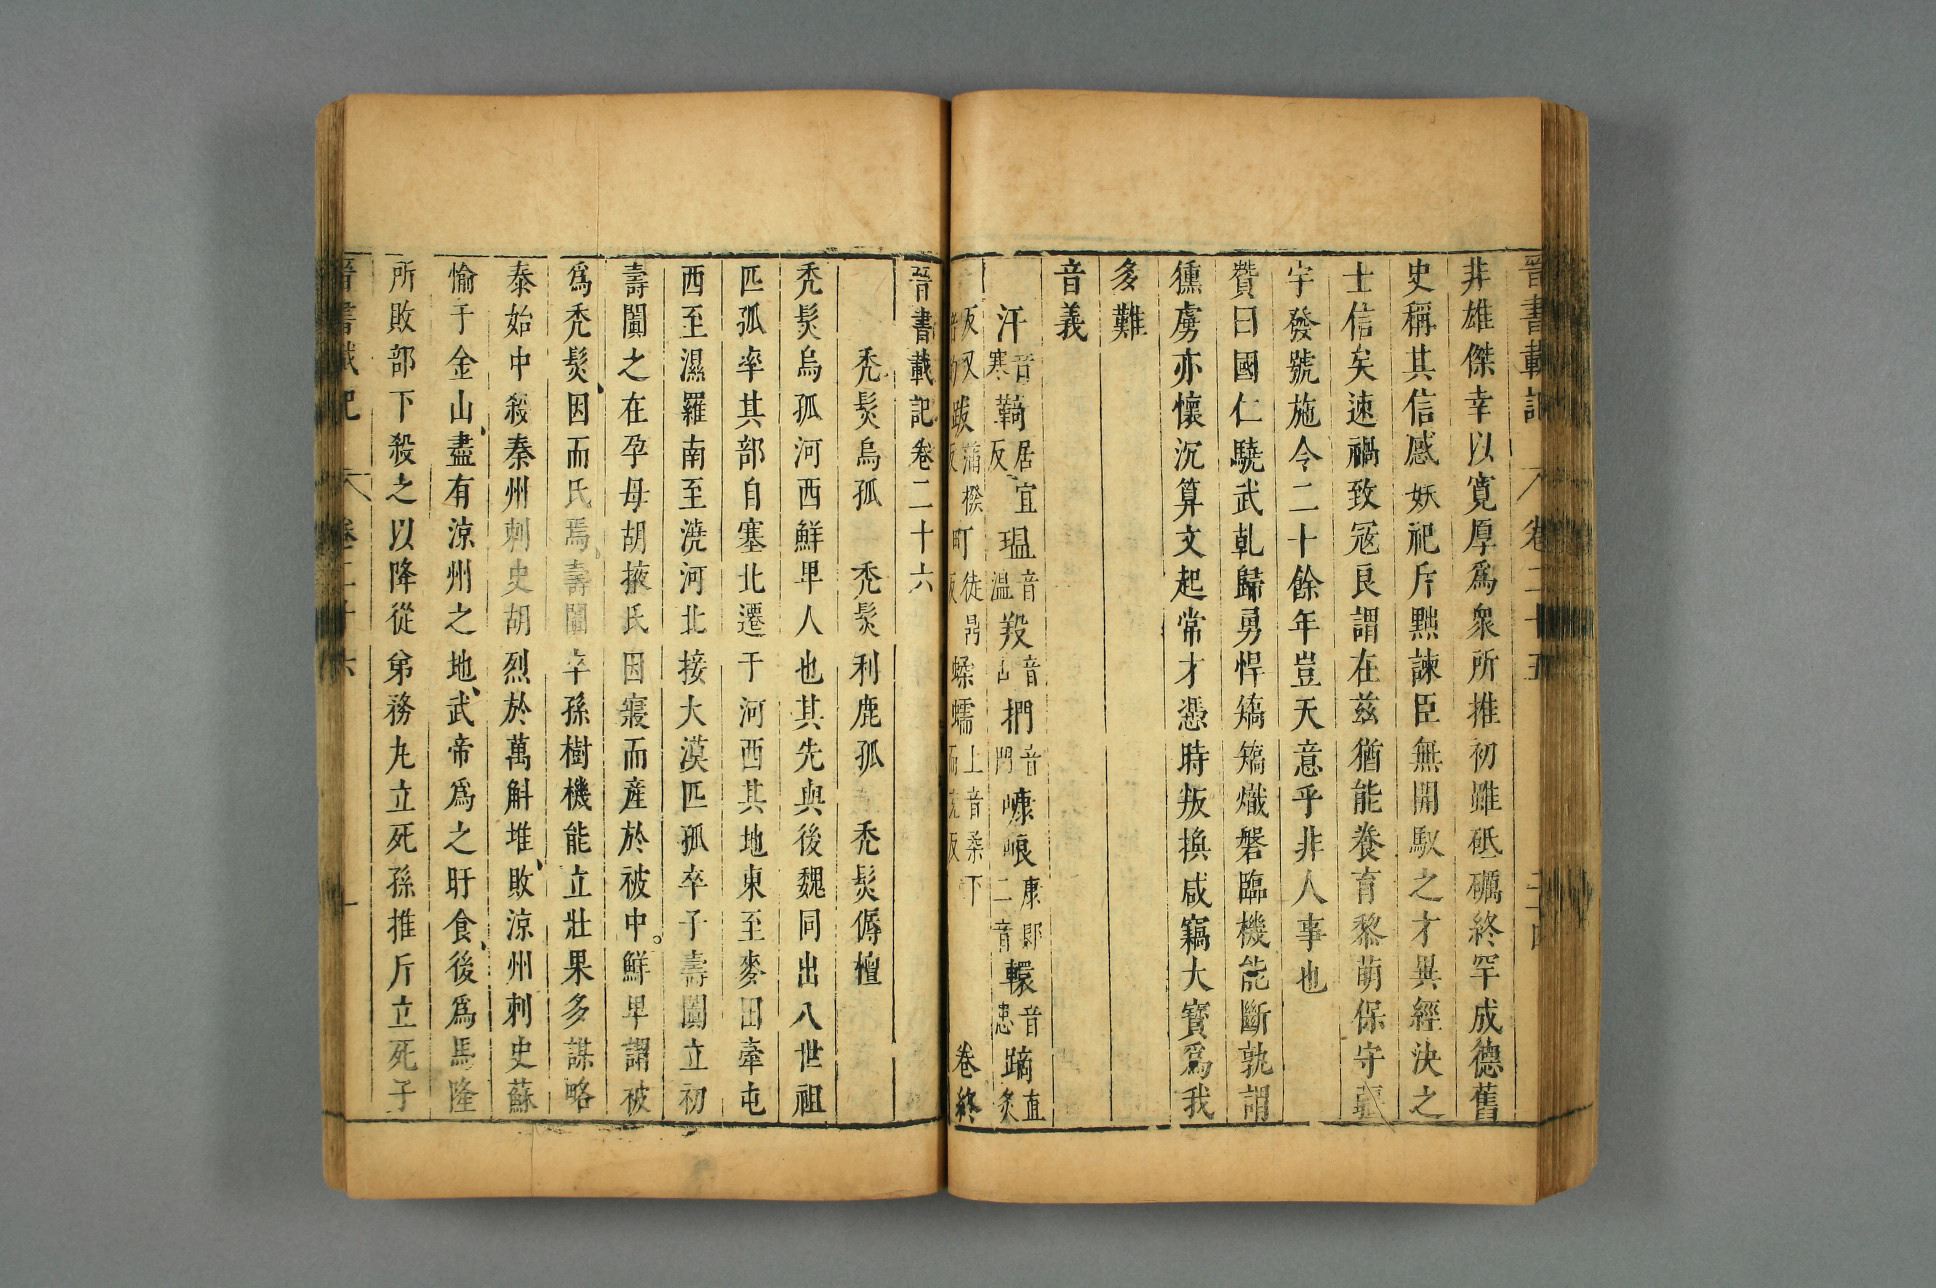 晉書載記 卷二十五
非雄傑幸以寬厚爲衆所推初雖砥礪終罕成德舊
史稱其信惑妖祀斥黜諫臣無開馭之才異經決之
士信矣速禍致寇良謂在兹猶能養育黎萌保守疆
宇發號施令二十餘年豈天意乎非人事也
贊曰國仁驍武乾歸勇悍矯矯熾磐臨機能斷孰謂
獯虜亦懷沉算文起常才憑時叛換咸竊大寶爲我
多難
音義
汗音寒鞿居宜反瑥音溫羖音古捫音門嵻㟍康郎二音轘音患蹢直炙
反叉跋蒲撥反町徒鼎反蝚蠕上音柔下而兖反 卷終
晉書載記卷二十六
禿髮烏孤 禿髮利鹿孤 禿髮傉檀
禿髮烏孤河西鮮卑人也其先與後魏同出八世祖
匹孤率其部自塞北遷于河西其地東至麥田牽屯
西至濕羅南至澆河北接大漠匹孤卒子壽闐立初
壽闐之在孕母胡掖氏因寢而產於被中鮮卑謂被
爲禿髮因而氏焉壽闐卒孫樹機能立壯果多謀略
泰始中殺秦州刺史胡烈於萬斛堆敗涼州刺史蘇
愉于金山盡有涼州之地武帝爲之旰食後爲馬隆
所敗部下殺之以降從弟務丸立死孫推斤立死子
晉書載記 卷二十六 一